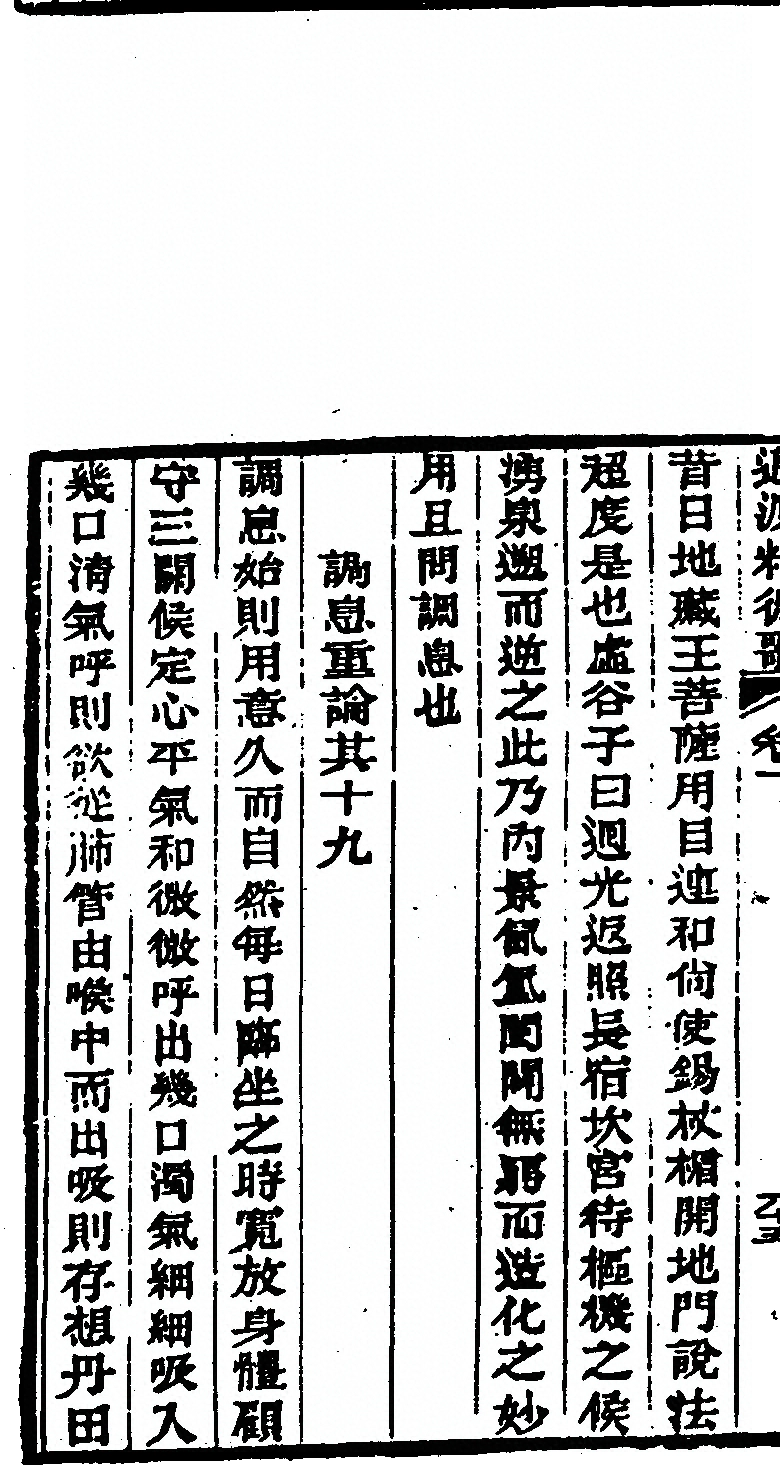 昔日地藏王菩薩用目連和尚使錫杖楯開地門說法
超度是也虛谷子曰迴光返照長宿坎宮待樞機之候
湧泉遡而逆之此乃內景氤氳開闔無窮而造化之妙
用且問調息也
調息重論其十九
調息始則用意久而自然每日臨坐之時寬放身體顧
守三關候定心平氣和微微呼出幾口濁氣細細吸入
幾口清氣呼則欲從肺管由喉中而出吸則存想丹田